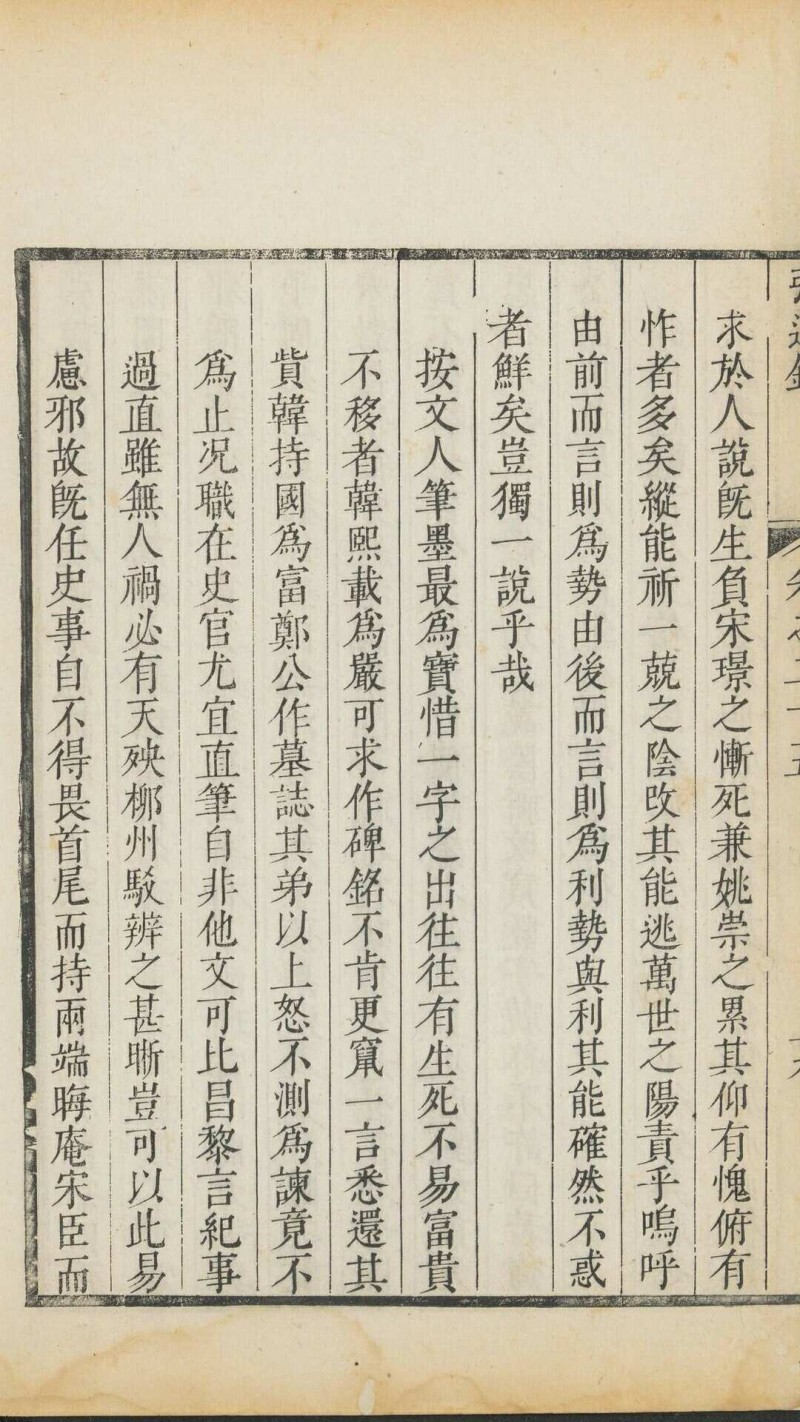 求於人說旣生負宋璟之慚死兼姚崇之累其仰有愧俯有
怍者多矣縱能祈一兢之陰改其能逃萬世之陽責乎嗚呼
由前而言則爲勢由後而言則爲利勢與利其能確然不惑
者鮮矣豈獨一說乎哉
按文人筆墨最爲寶惜一字之出往往有生死不易富貴
不移者韓熙載爲嚴可求作碑銘不肯更竄一言悉還其
貲韓持國爲富鄭公作墓誌其弟以上怒不測爲諫竟不
爲止况職在史官尤宜直筆自非他文可比昌黎言紀事
過直雖無人禍必有天殃柳州駁辨之甚晰豈可以此易
慮邪故旣任史事自不得畏首尾而持兩端晦庵宋臣而